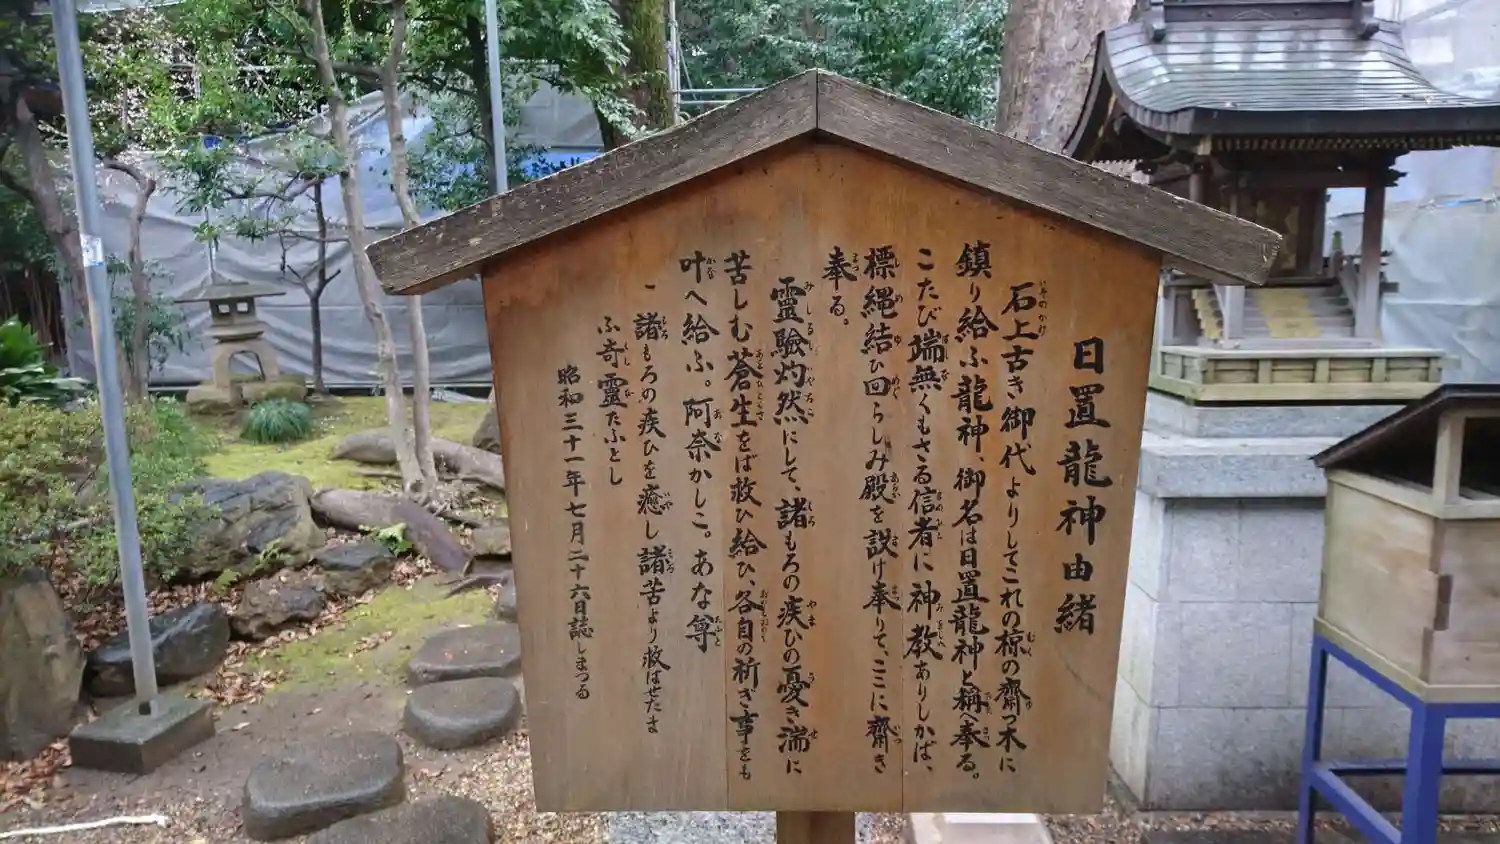 日置龍神由緒
石上古き御代よりしてこれの椋の齋つ木に
鎮り給ふ龍神、御名は日置龍神と稱へ奉る。
こたび端無くもさる信者に神教ありしかば、
標縄結ひ回らしみ殿を設け奉りて、ここに齋き
奉る。
靈驗灼然にして、諸もろの疾ひの憂き湍に
苦しむ蒼生をば救ひ給ひ、各自の祈ぎ事をも
叶へ給ふ。阿奈かしこ。あな尊
諸もろの疾ひを癒し諸苦より救はせたま
ふ奇靈たふとし
昭和三十一年七月二十六日誌しまつる